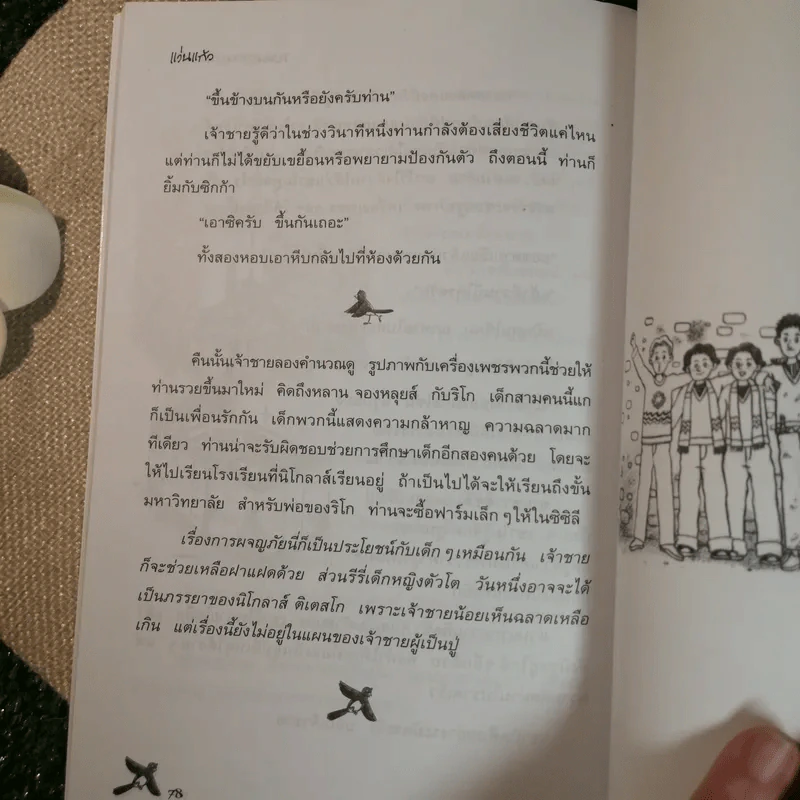 แว่นแก้ว
“ขึ้นข้างบนกันหรือยังครับท่าน”
เจ้าชายรู้ดีว่าในช่วงวินาทีหนึ่งท่านกำลังต้องเสี่ยงชีวิตแค่ไหน
แต่ท่านก็ไม่ได้ขยับเขยื้อนหรือพยายามป้องกันตัว ถึงตอนนี้ ท่านก็
ยิ้มกับซิกก้า
“เอาซิครับ ขึ้นกันเถอะ”
ทั้งสองหอบเอาหีบกลับไปที่ห้องด้วยกัน
คืนนั้นเจ้าชายลองคำนวณดู รูปภาพกับเครื่องเพชรพวกนี้ช่วยให้
ท่านรวยขึ้นมาใหม่ คิดถึงหลาน จองหลุยส์ กับริโก เด็กสามคนนี้แก
ก็เป็นเพื่อนรักกัน เด็กพวกนี้แสดงความกล้าหาญ ความฉลาดมาก
ทีเดียว ท่านน่าจะรับผิดชอบช่วยการศึกษาเด็กอีกสองคนด้วย โดยจะ
ให้ไปเรียนโรงเรียนที่นิโกลาส์เรียนอยู่ ถ้าเป็นไปได้จะให้เรียนถึงขั้น
มหาวิทยาลัย สำหรับพ่อของริโก ท่านจะซื้อฟาร์มเล็กๆให้ในซิซิลี
เรื่องการผจญภัยนี่ก็เป็นประโยชน์กับเด็กๆเหมือนกัน เจ้าชาย
ก็จะช่วยเหลือฝาแฝดด้วย ส่วนรีรี่เด็กหญิงตัวโต วันหนึ่งอาจจะได้
เป็นภรรยาของนิโกลาส์ ติเตสโก เพราะเจ้าชายน้อยเห็นฉลาดเหลือ
เกิน แต่เรื่องนี้ยังไม่อยู่ในแผนของเจ้าชายผู้เป็นปู่
78